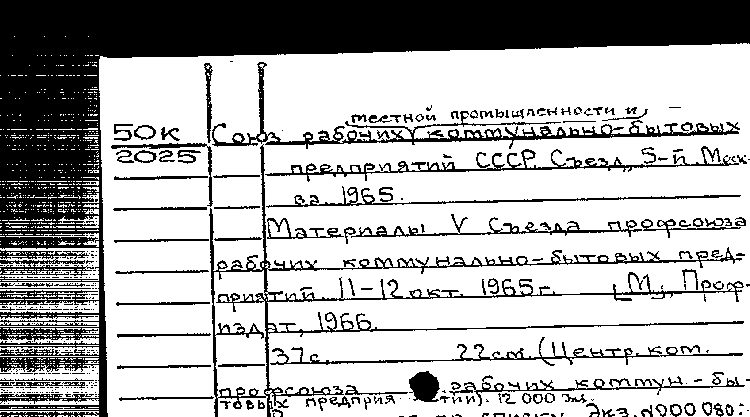 местной промышленности и
50к Союз рабочих коммунально-бытовых
2025 предприятий СССР. Съезд, 5-й. Моск-
ва. 1965.
Материалы V Съезда профсоюза
рабочих коммунально-бытовых пред-
приятий 11-12 окт. 1965г. [М], Проф-
издат, 1966.
37с. 22см. (Центр. ком.
профсоюза рабочих коммун.-бы-
товых предприятий). 12 000 экз.
списку экз. №000080: